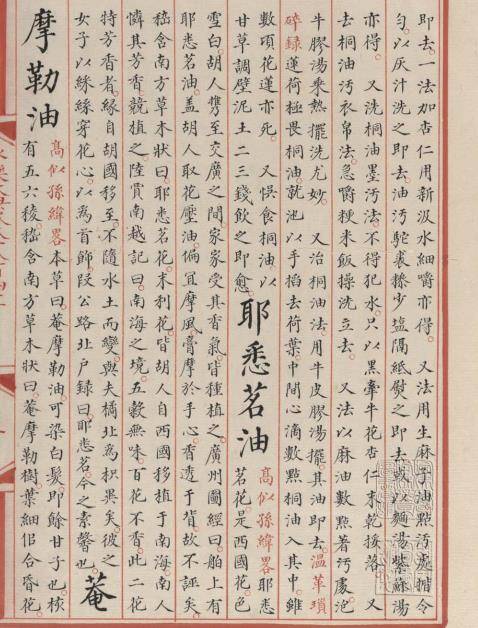 即去。一法加杏仁用新汲水細嚼亦得。又法用生麻子油點污處揩令
勻。以灰汁洗之即去。油汚駝裘摻少塩隔紙熨之即去。或以麵湯紫蘇湯
亦得。又洗桐油墨汚法。不得犯水。只以黑牽牛花杏仁末乾挼落。又
去桐油汚衣帛法。急嚼粳米飯揉洗立去。又法以麻油數點著汚處。
牛膠湯乘熱擺洗尤妙。又治桐油法。用牛皮膠湯擺其油即去。温革瑣
碎録蓮荷極畏桐油。就池以手掐去荷葉。中間心滴數點桐油入其中。雖
數頃花蓮亦死。又悮食桐油。以
甘草調壁泥土二三錢飲之即愈
耶悉茗油
高似孫緯畧耶悉
茗花。是西國花。色
雪白。胡人㩦至交廣之間。家家受其香氣。皆種植之。廣州圖經曰。舶上有
耶悉茗油。盖胡人取花壓油。偏宜摩風膏摩於手心。香透于背。故不誣矣。
嵇含南方草木狀曰。耶悉茗花末利花。皆胡人自西國移植于南海南人
憐其芳香。競植之。陸賈南越記曰。南海之境。五穀無味。百花不香。此二花
特芳香者。縁自胡國移至。不隨水土而變。與夫橘北為枳異矣。彼之
女子以綵絲穿花心。以為首飾。叚公路北户録曰。耶悉茗。今之素馨也。
菴
摩勒油
高似孫緯畧本草曰。菴摩勒油。可染白髮。即餘甘子也。核
有五六稜。嵇含南方草木狀曰。菴摩勒樹葉細佀合昏花。